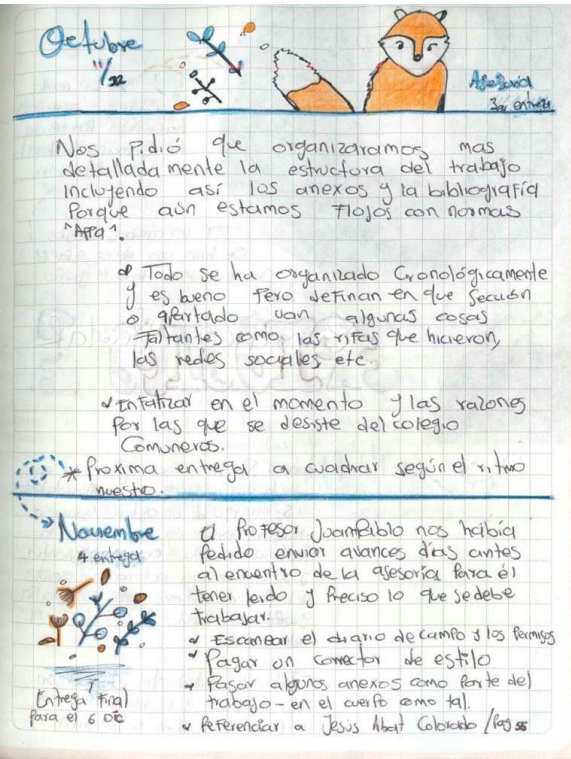 Octubre
11/22
Asesoría
3er entrega
Nos Pidió que organizaramos mas
detalladamente la estructura del trabajo
incluyendo así los anexos y la bibliografía
Porque aún estamos Flojos con normas
"APPa".
Todo se ha organizado Cronológicamente
y es bueno Pero definan en que Seccion
o apartado van algunas cosas
Faltantes como las rifas que hicieron,
las redes sociales etc.
✓ Enfatizar en el momento y las razones
Por las que se desiste del colegio
Comuneros.
* Proxima entrega a cuadrar según el ritmo
nuestro.
Noviembre
4 entrega
El Profesor JuanPablo nos había
Pedido enviar avances días antes
al encuentro de la asesoría Para él
tener leido y Preciso lo que se debe
trabajar.
✓ Escanear el diario de campo y los Permisos
✓ Pagar un corrector de estilo
✓ Pasar algunos anexos como Parte del
trabajo - en el cuerpo como tal.
✓ Referenciar a Jesus Abat Colorado / Pag 55
Entrega Final
Para el 6 Dic